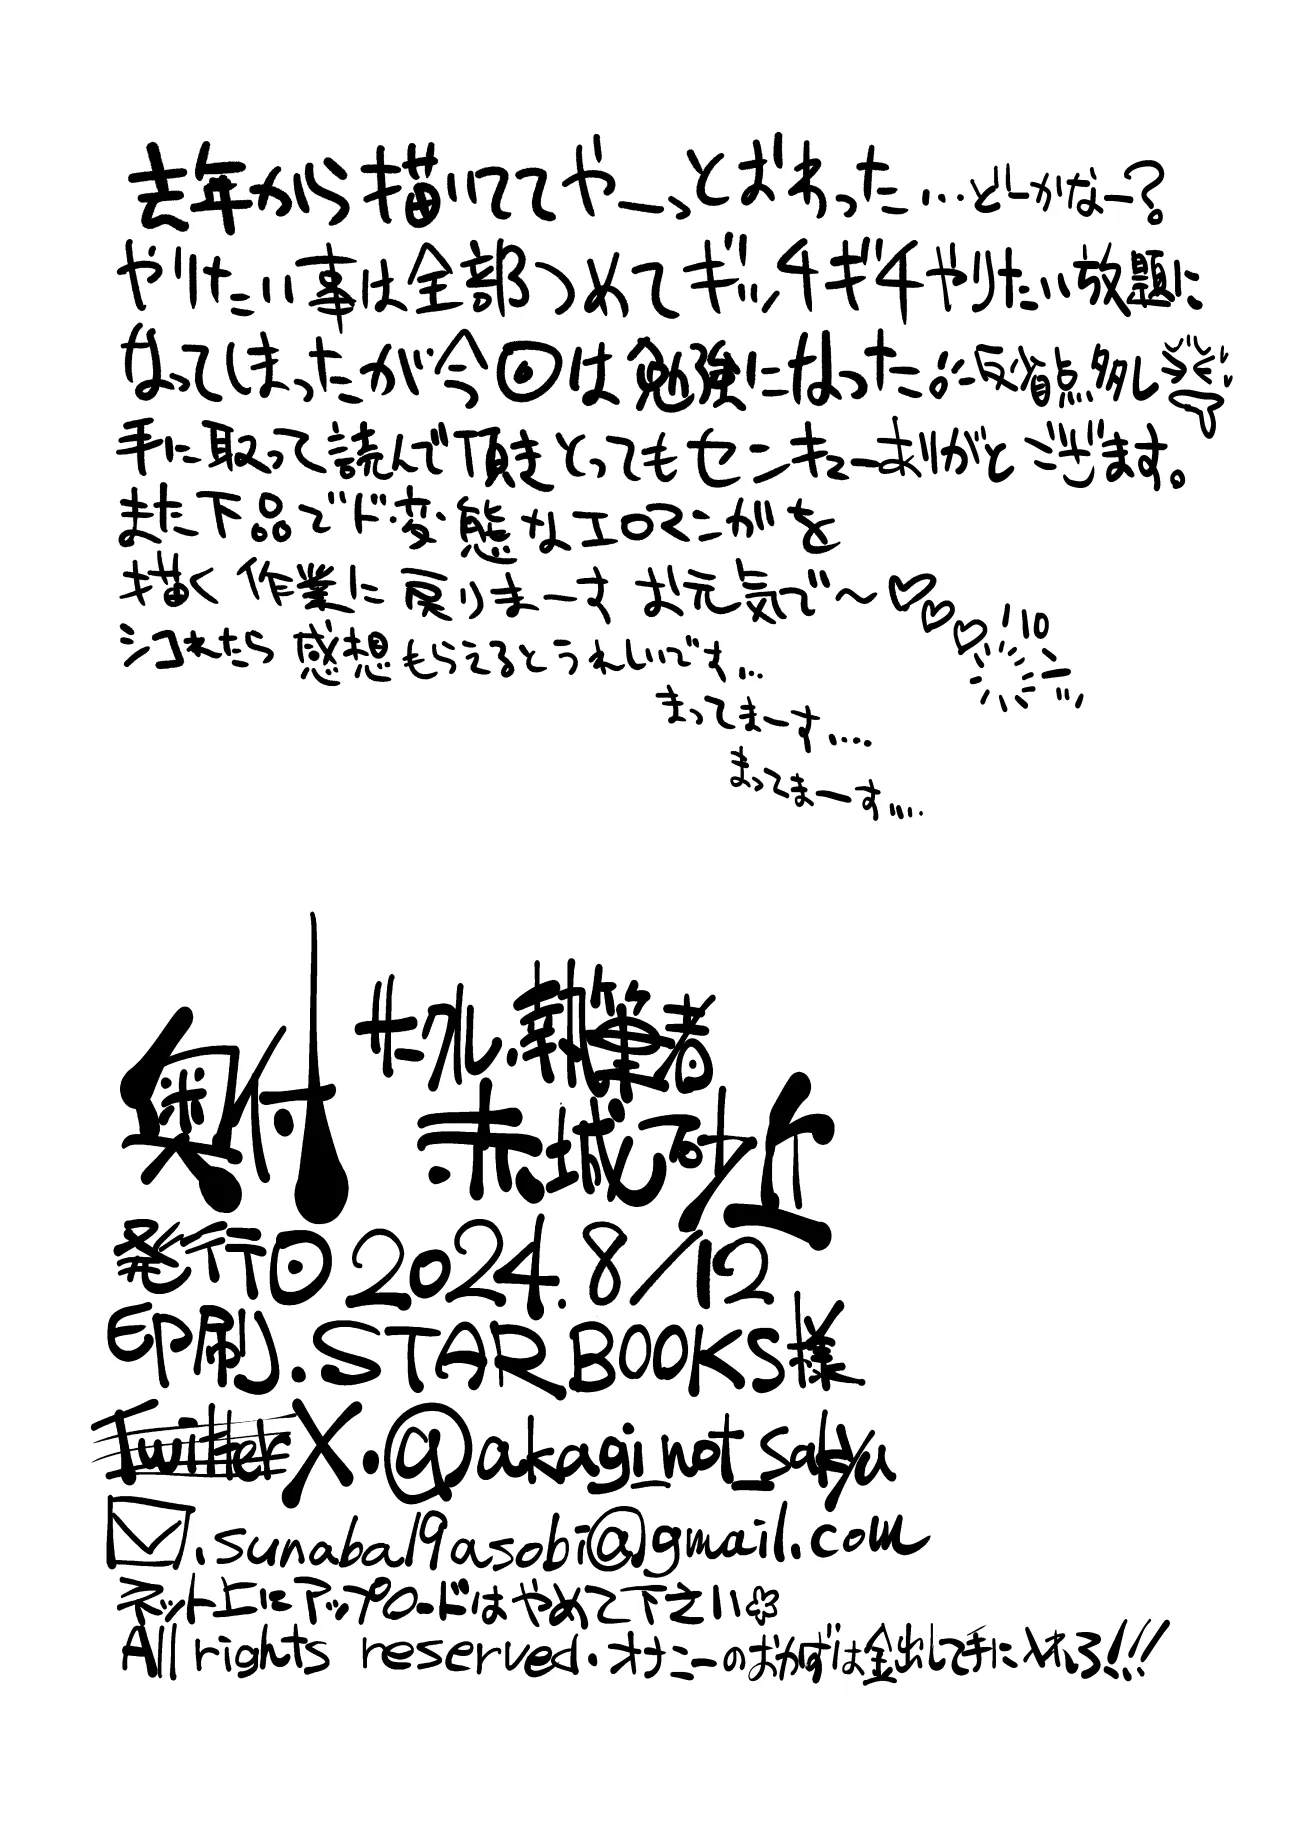 去年から描いててやーっとおわった…どーかなー?
やりたい事は全部つめてギッチギチやりたい放題に
なってしまったが今回は勉強になった!!反省点多し
手に取って読んで頂きとってもセンキューありがとございます。
また下品でド変態なエロマンガを
描く作業に戻りまーすお元気で～♡♡♡
シコれたら感想もらえるとうれしいです…
まってまーす….
まってまーす….
奥付
サークル.執筆者
赤城砂丘
発行日2024.8/12
印刷.STARBOOKS様
Twitter X.@akagi_not_sakyu
.sunaba19asobi@gmail.com
ネット上にアップロードはやめて下さい
All rights reserved.オナニーのおかずは金出して手に入れろ!!!